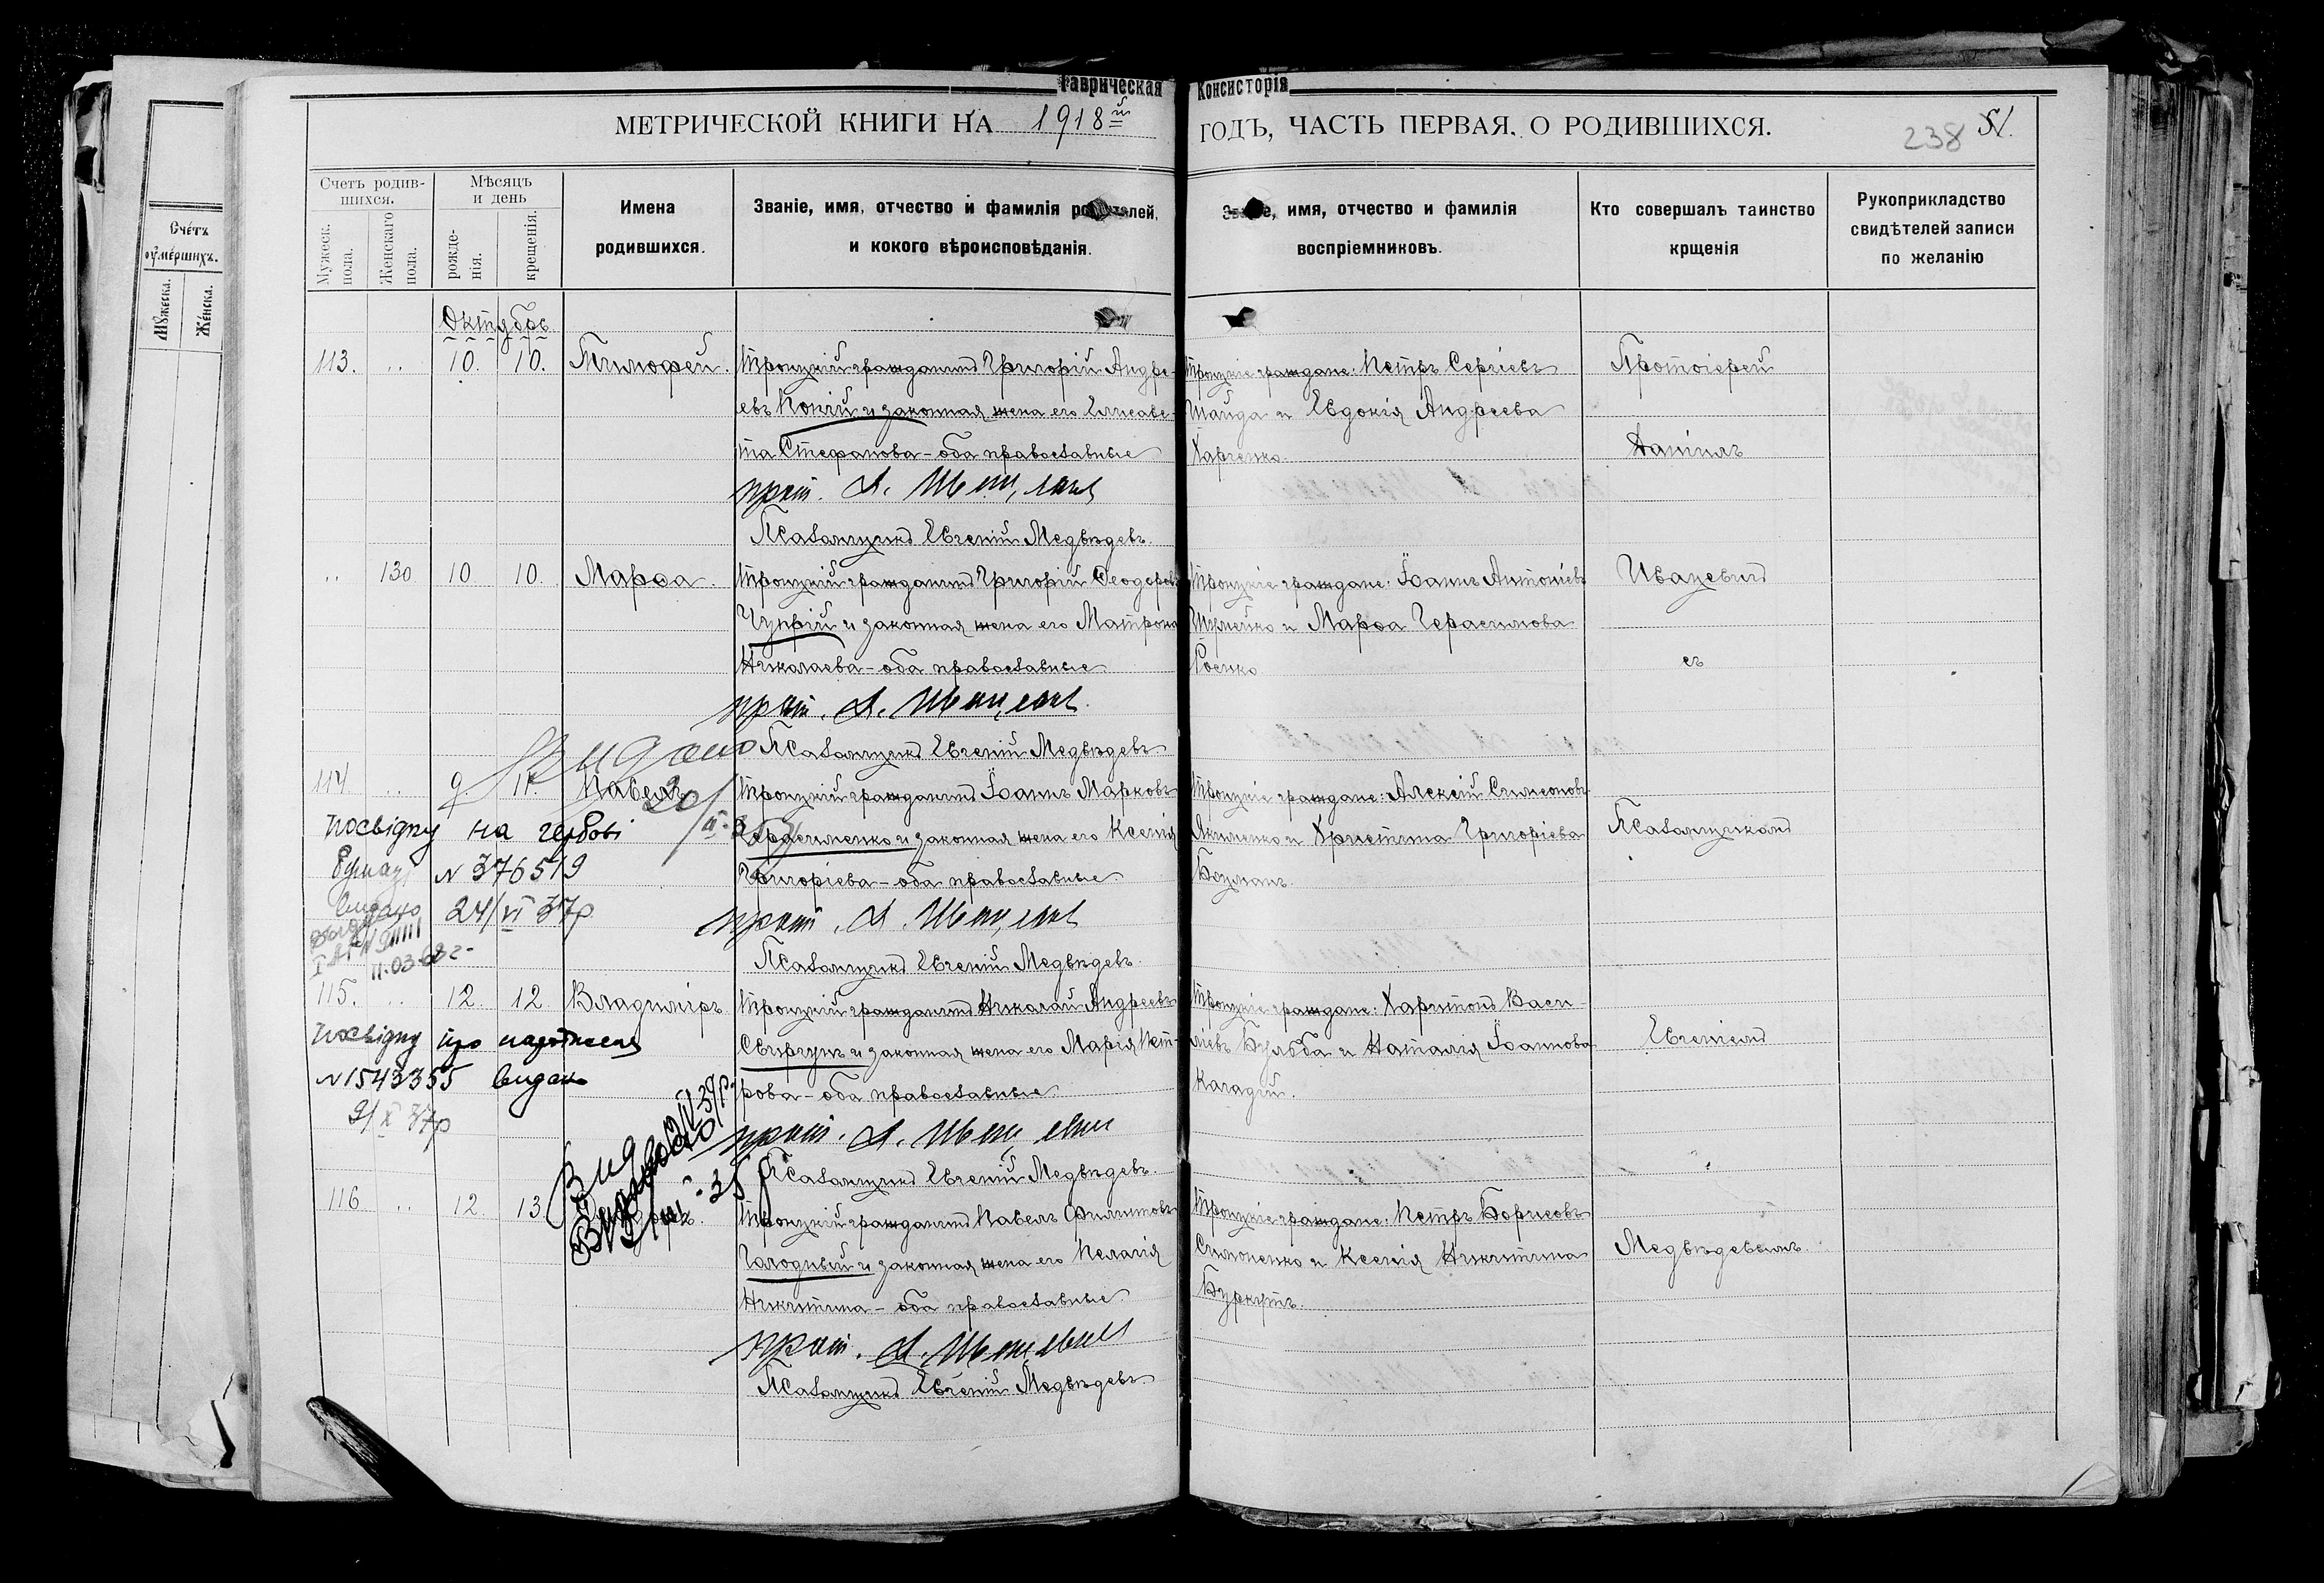 Таврическая Консисторія
МЕТРИЧЕСКОЙ КНИГИ НА 1918й ГОДЪ, ЧАСТЬ ПЕРВАЯ, О РОДИВШИХСЯ.
238 51.
Счетъ умершихъ.
Мужеска.
Женска.
Счетъ родившихся.
Мужеск. пола.
Женскаго пола.
Мѣсяцъ и день
рожденія.
крещенія.
Имена родившихся.
Званіе, имя, отчество и фамилія родителей, и кокого вѣроисповѣданія.
Званіе, имя, отчество и фамилія воспріемниковъ.
Кто совершалъ таинство крщенія
Рукоприкладство свидѣтелей записи по желанію
Октябрь
113. .. 10. 10. Тимофей. Троицкій гражданинъ Григорій Андре-
евъ Конгій и законная жена его Елисаве-
та Стефанова – оба православные
прот. Д.
Псаломщикъ Евгеній Медвѣдевъ.
Троицкіе граждане: Петръ Сергіевъ
Шайда и Евдокія Андреева
Харченко.
Протоіерей
Даніилъ
.. 130 10 10. Марѳа. Троицкій гражданинъ Григорій Ѳеодоровъ
Чупрій и законная жена его Матрона
Николаева – оба православные
прот. Д.
Псаломщикъ Евгеній Медвѣдевъ.
Троицкіе граждане: Іоаннъ Антоніевъ
и Марѳа Герасимова
Роенко.
съ
Видано
20/
114. .. 9. 11. Павелъ Троицкій гражданинъ Іоаннъ Марковъ
Герасименко и законная жена его Ксенія
Григоріева – оба православные
прот. Д.
Псаломщикъ Евгеній Медвѣдевъ.
Троицкіе граждане: Алексій Симеоновъ
Якименко и Христина Григоріева
Боцманъ.
Псаломщикомъ
посвідку на гербові
бумазі N 376519
видано 24/VI 37р.
11.03.68г-
115. .. 12. 12. Владиміръ Троицкій гражданинъ Николай Андреевъ
Свиргунъ и законная жена его Марія Пет-
рова – оба православные
прот. Д.
Псаломщикъ Евгеній Медвѣдевъ.
Троицкіе граждане: Харитонъ Васи-
ліевъ Бульба и Наталія Іоаннова
Карадги.
Евгеніемъ
посвідку про народження
N 1543355 видано
21/X 37р
116 .. 12. 13. Троицкій гражданинъ Павелъ Филипповъ
Голодный и законная жена его Пелагія
Никитина – оба православные
прот. Д.
Псаломщикъ Евгеній Медвѣдевъ
Троицкіе граждане: Петръ Борисовъ
Симоненко и Ксенія Никитина
Буркутъ.
Медвѣдевымъ.